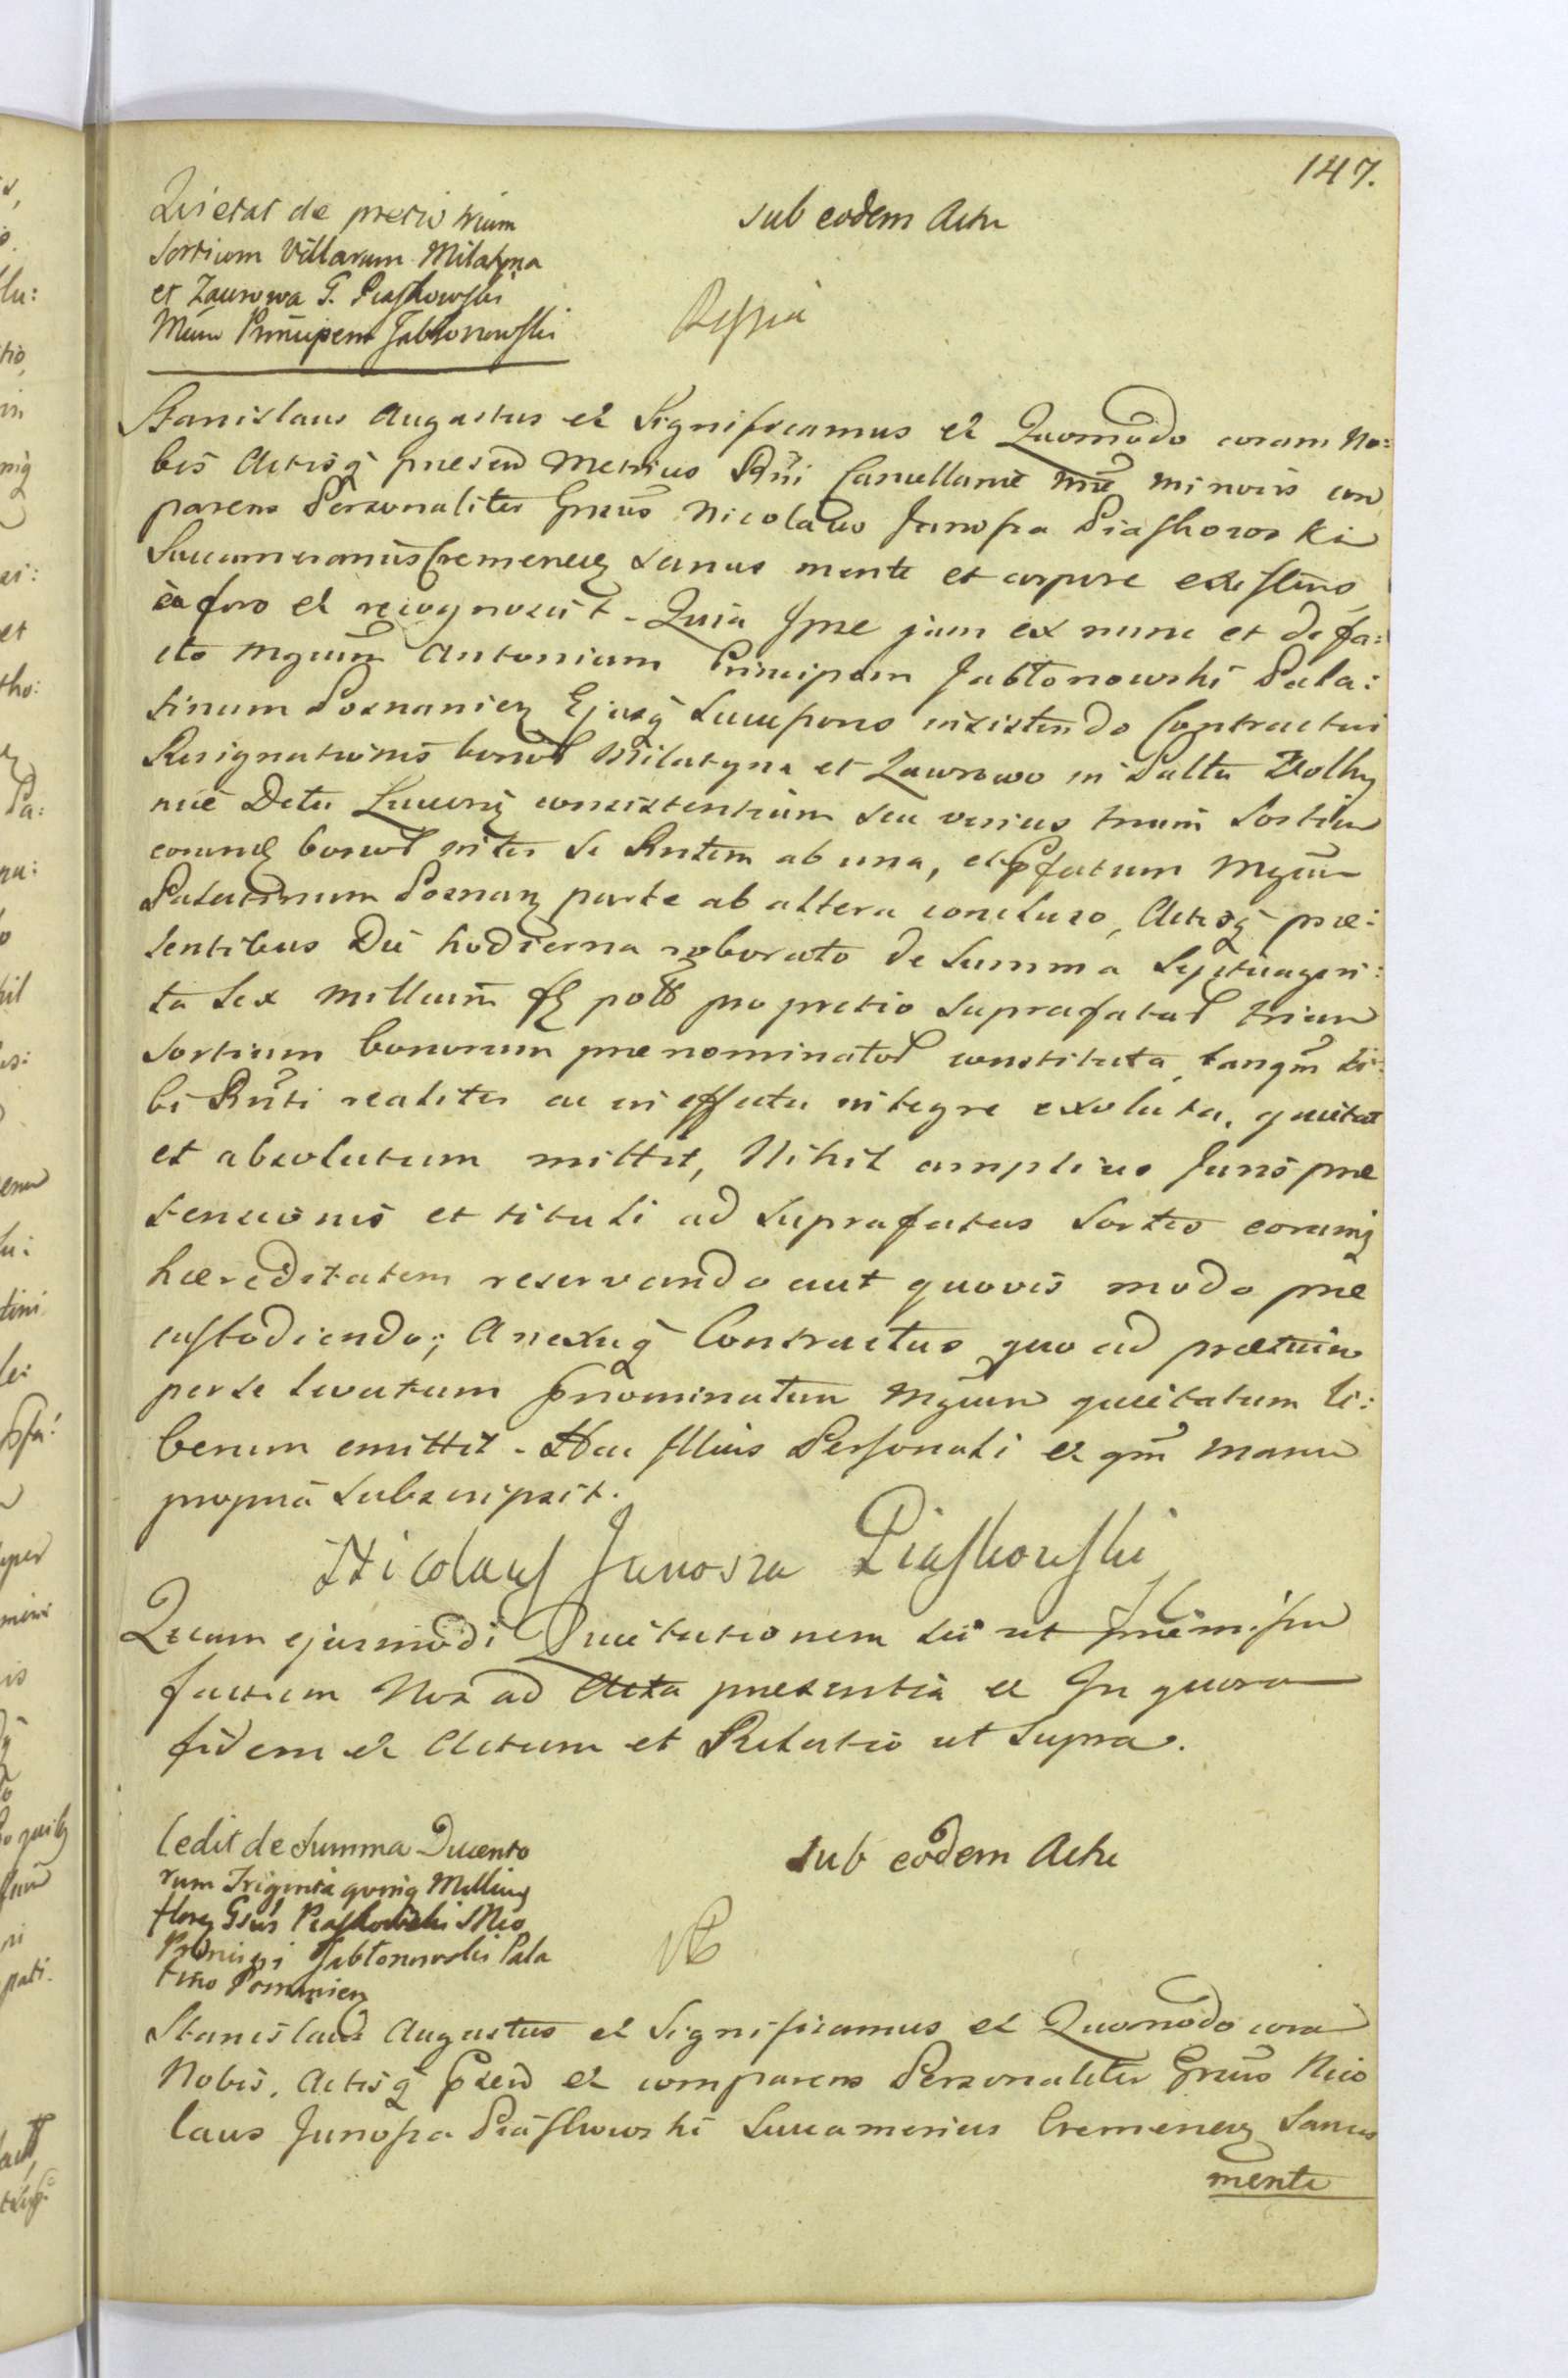 147.
Quietat de pretio trium
sortium Villarum Milatyna
et Zaurowa G. Piaskowski
Mcum Principem Jabłonowski
sub eodem Actu
Stanislaus Augustus et Significamus et Quomodo coram No:
bis Actisq presen Metrices Rñi Cancellariæ mīs minoris com
parens Personaliter Gnrsus Nicolaus Junosza Piaskowski
Succamerarius Cremenecz sanus mente et corpore existens
et recognovit. Quia Ipse jam ex nunc et de fa:
cto Mgcum Antonium Principem Jabłonowski Pala:
tinum Posnanien Ejusq Succespores insistendo Contractui
Resignationis bonor Milatyna et Zaurowo in Palltu Wolhy
niæ Dctu Luceori consistentium seu verius trium Sortium
eorumq bonor inter se Rntem ab una, et pfatum Mgcum
Palatinum Posnan parte ab altera concluso, Actisq præ:
sentibus Die hodierna roborato de Summa Septuagin:
ta Sex Millium fl poll pro pretio suprafatar trium
sortium bonorum prenominator constituta, tanqm si:
bi Rnti realiter ac in effectu integre exoluta, quietat
et absolutum mittit, Nihil amplius Juris præ
tensionis et tituli ad suprafatas Sortes earumq
hæreditatem reservando aut quovis modo præ
custodiendo; Anexuq Contractus quo ad prætium
per se levatum pnominatum Mgcum quietatum li:
berum emittit. Hac Illius Personali et qm manu
propria subscripsit.
Nicolaus Junosza Piaskowski
Quam ejusmodi Quietationem sic ut præmissum
factam Nos ad Acta presentia et In quorum
fidem et Actum et Relatio ut Supra.
Cedit de Summa Ducento
rum Triginta quinq Millium
floren Gssus Piaskowski Mco
Principi Jabłonowski Pala
tino Posnanien
sub eodem Actu
Stanislaus Augustus et Significamus et Quomodo coram
Nobis, Actisq psen et comparens Personaliter Gnrsus Nico
laus Junosza Piaskowski Succamerius Cremenecz Sanus
mente